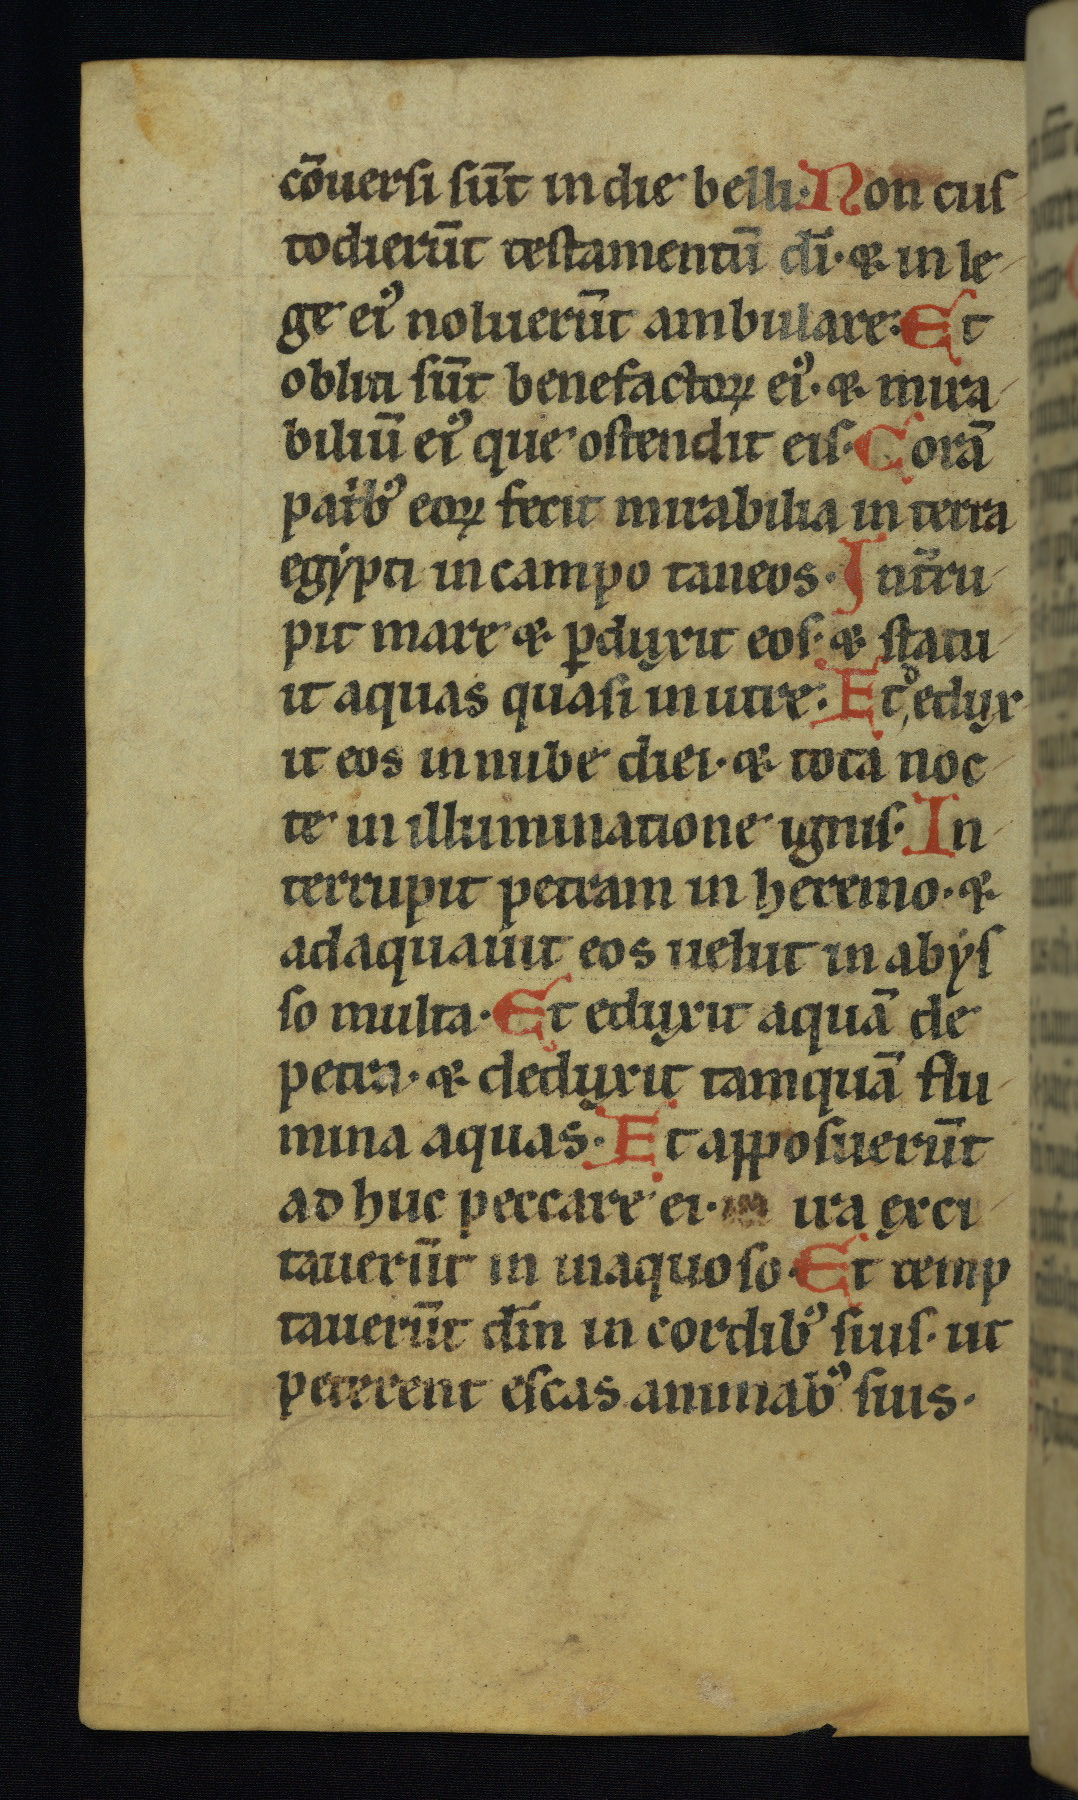 cōuersi sūt in die belli· Non cus
todierūt testamentū dī· ⁊ in le
ge ei᾽ noluerūt ambulare: Et
obliti sūt benefactoꝝ ei᾽· ⁊ mira
biliū ei᾽ que ostendit eis· Corā
pat᷑b᾽ eoꝝ fecit mirabilia in terra
egẏpti in campo taneos· Int̄ru
pit mare ⁊ ꝑduxit eos· ⁊ statu
it aquas quasi in utre: Et, dedux
it eos in nube diei· ⁊ tota noc
te in illuminatione ignis· In
terrupit petram in heremo· ⁊
adaquauit eos uelut in abẏs
so multa· Et eduxit aquā de
petra· ⁊ deduxit tamquā flu
mina aquas· Et apposuerūt
ad huc peccare ei· ira exci
tauerūt in inaquoso· Et temp
tauerūt dm̄ in cordib᾽ suis· ut
peterent escas animab᾽ suis·